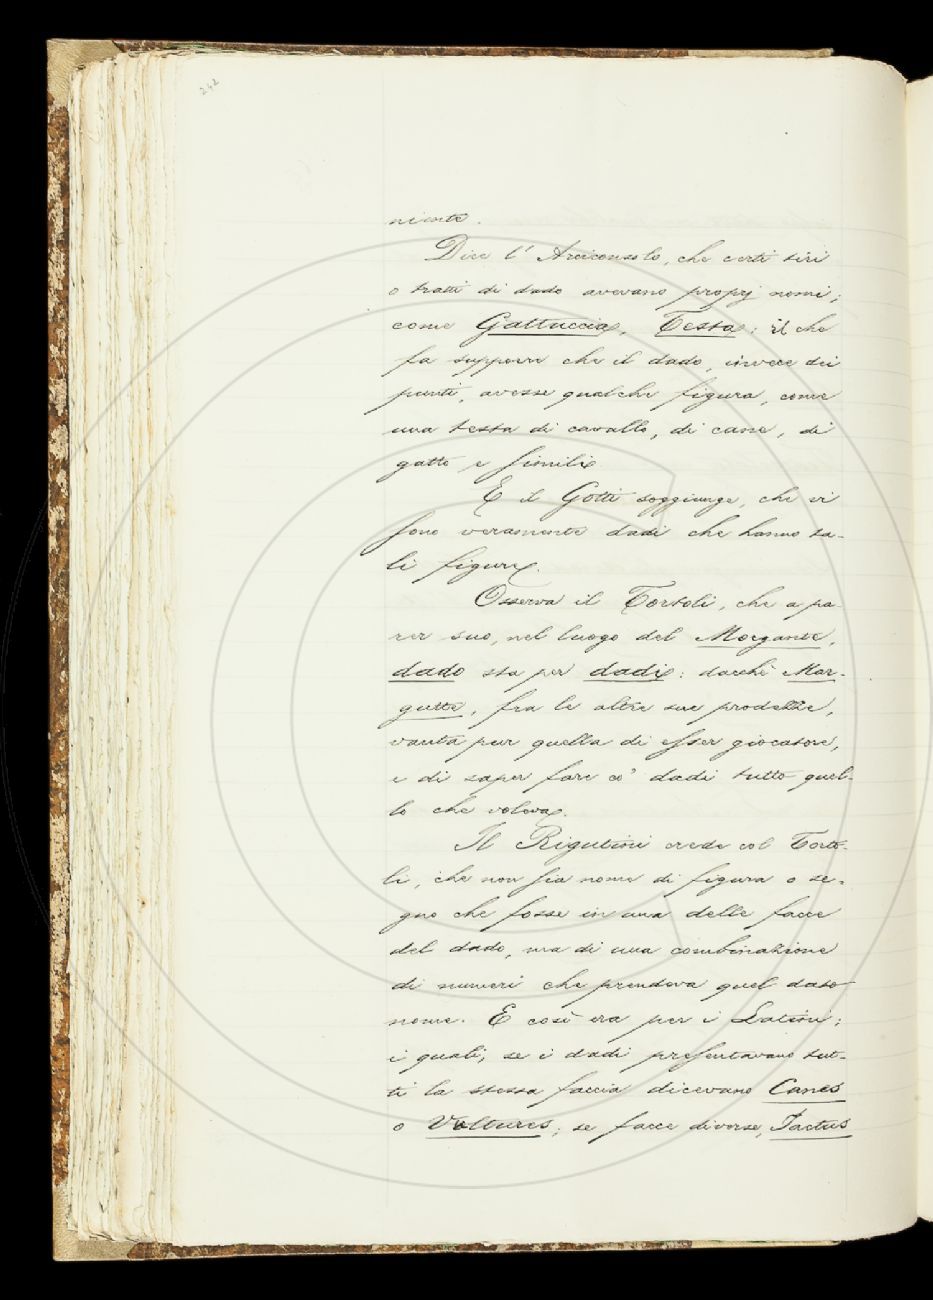 242
niente.
Dice l'Arciconsolo, che certi tiri
o tratti di dado avevano proprj nomi;
come Gattuccia, Testa; il che
fa supporre che il dado, invece dei
punti, avesse qualche figura, come
una testa di cavallo, di cane, di
gatto e simili.
E il Gotti soggiunge, che vi
sono veramente dadi che hanno ta-
li figure.
Osserva il Tortoli, che a pa-
rer suo, nel luogo del Morgante,
dado sta per dadi: dacchè Mar-
gutte, fra le altre sue prodezze,
vanta pur quella di esser giocatore,
e di saper fare co' dadi tutto quel-
lo che voleva.
Il Rigutini crede col Torto-
li, che non sia nome di figura o se-
gno che fosse in una delle facce
del dado, ma di una combinazione
di numeri che prendeva quel dato
nome. E così era per i Latini;
i quali, se i dadi presentavano tut-
ti la stessa faccia dicevano Canes
o Voltures; se facce diverse, Jactus